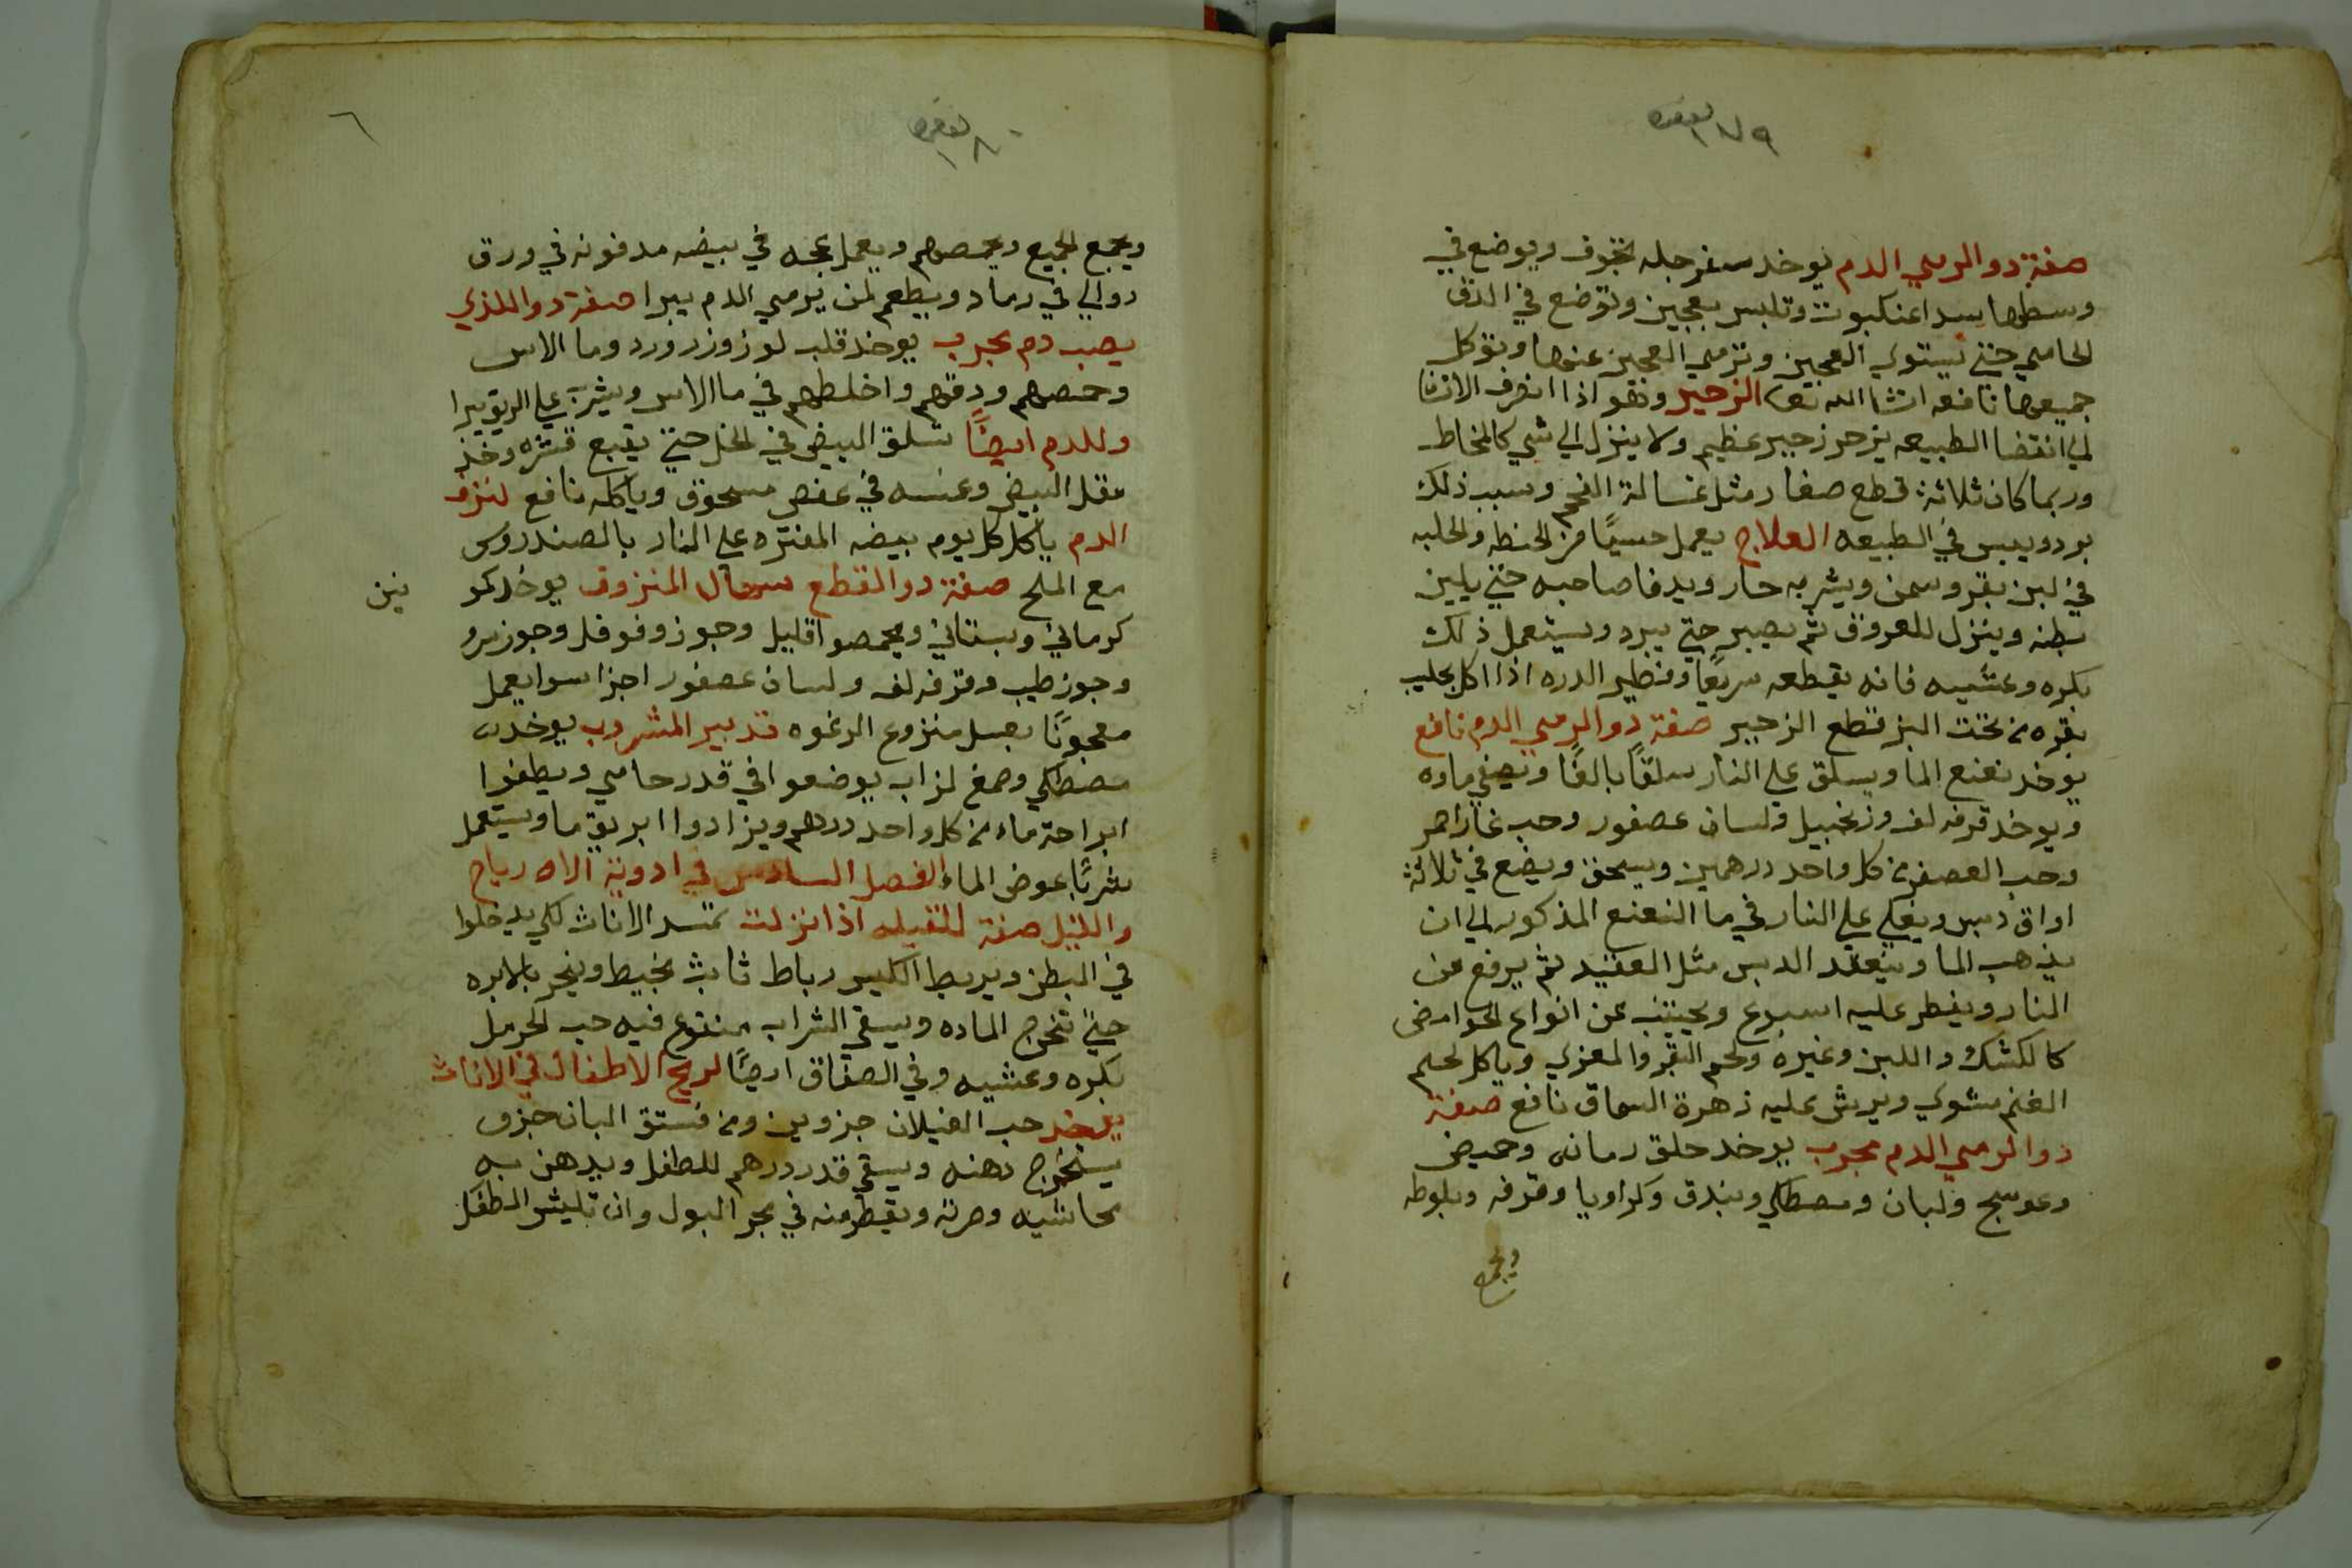 ١٧٩
صفة دوا لرمي الدم يوخد سفرجله تجوف ويوضع في
وسطها سدا عنكبوت وتلبس بعجين وتوضع في الدق
الحامي حتي يستوي العجين وترمي العجين عنها وتوكل
جميعها نافعه انشا الله تعا الزحير وهو اذا انصرف الانسان
الي انقضا الطبيعه يزحر زحير عظيم ولا ينزل الي شي كالمخاط
وربما كان ثلاثة قطع صغار مثل غسالة الفحم وسبب ذلك
برد ويبس في الطبيعه العلاج يعمل حسيًا من الحنطه والحلبه
في لبن بقر وسمن ويشربه حار ويدفا صاحبه حتي يلين
بطنه وينزل للعروق ثم يصبر حتي يبرد ويستعمل ذلك
بكره وعشيه فانه يقطعه سريعًا وفطير الدره اذا اكل بحليب
بقره من تحت البز قطع الزحير صفة دوا لرمي الدم نافع
يوخد نعنع الما ويسلق علي النار سلقًا بالغًا ويصفي ماوه
ويوخد قرفه لف وزنجبيل ولسان عصفور وحب غار احمر
وحب العصفر من كل واحد درهمين ويسحق ويضع في ثلاثة
اواق دبس ويغلي علي النار في ما النعنع المذكور الي ان
يذهب الما وينعقد الدبس مثل العقيد ثم يرفع عن
النار ويفطر عليه اسبوع ويجتنب عن انواع الحوامض
كالكشك واللبن وغيره ولحم البقر والمعزي وياكل لحم
الغنم مشوي ويرش عليه زهرة السماق نافع صفة
دوا لرمي الدم مجرب يوخد حلق رمانه وحميض
وعوسج ولبان ومصطكي وبندق وكراويا وقرفه وبلوطه
ويجمع
١٨٠
٦
ويجمع الجميع ويحمصهم ويعمل عجه في بيضه مدفونه في ورق
دوالي في رماد ويطعم لمن يرمي الدم يبرا صفة دوا للذي
يصب دم مجرب يوخد قلب لوز وزر ورد وما الاس
وحمصهم ودقهم واخلطهم في ما الاس ويشرب علي الريق يبرا
وللدم ايضًا تسلق البيض في الخل حتي يقبع قشره وخذ
مقل البيض وغمسه في عفص مسحوق وياكله نافع لنزف
الدم ياكل كل يوم بيضه المفتره علي النار بالصندروس
مع الملح صفة دوا لقطع سهال المنزوف يوخد كمو
نين
كرماني وبستاني ويحمصوا قليل وجوز وفوفل وجوز سرو
وجوز طيب وقرفه لف ولسان عصفور اجزا سوا يعمل
معجونًا بعسل منزوع الرغوه تدبير المشروب يوخد
مصطكي وصمغ لزاب يوضعوا في قدر حامي ويطفوا
ابراحة ماء من كل واحد درهم ويزادوا ابريق ما ويستعمل
شربًا عوض الماء الفصل السادس في ادوية الارياح
والليل صفة للثقيله اذا نزلت تمسد الاناث لكي يدخلوا
في البطن ويربط الكيس رباط ثابت بخيط وينحر بالابره
حتي تخرج الماده ويسقي الشراب منقوع فيه حب الحرمل
بكره وعشيه وفي الصفاق ايضًا لريح الاطفال في الاناث
يوخد حب الغيلان جزوين ومن فستق البان جزو
يستخرج دهنه ويسقي قدر درهم للطفل ويدهن به
محاشيه وصرته ويقطر منه في مجر البول وان تليش الطفل